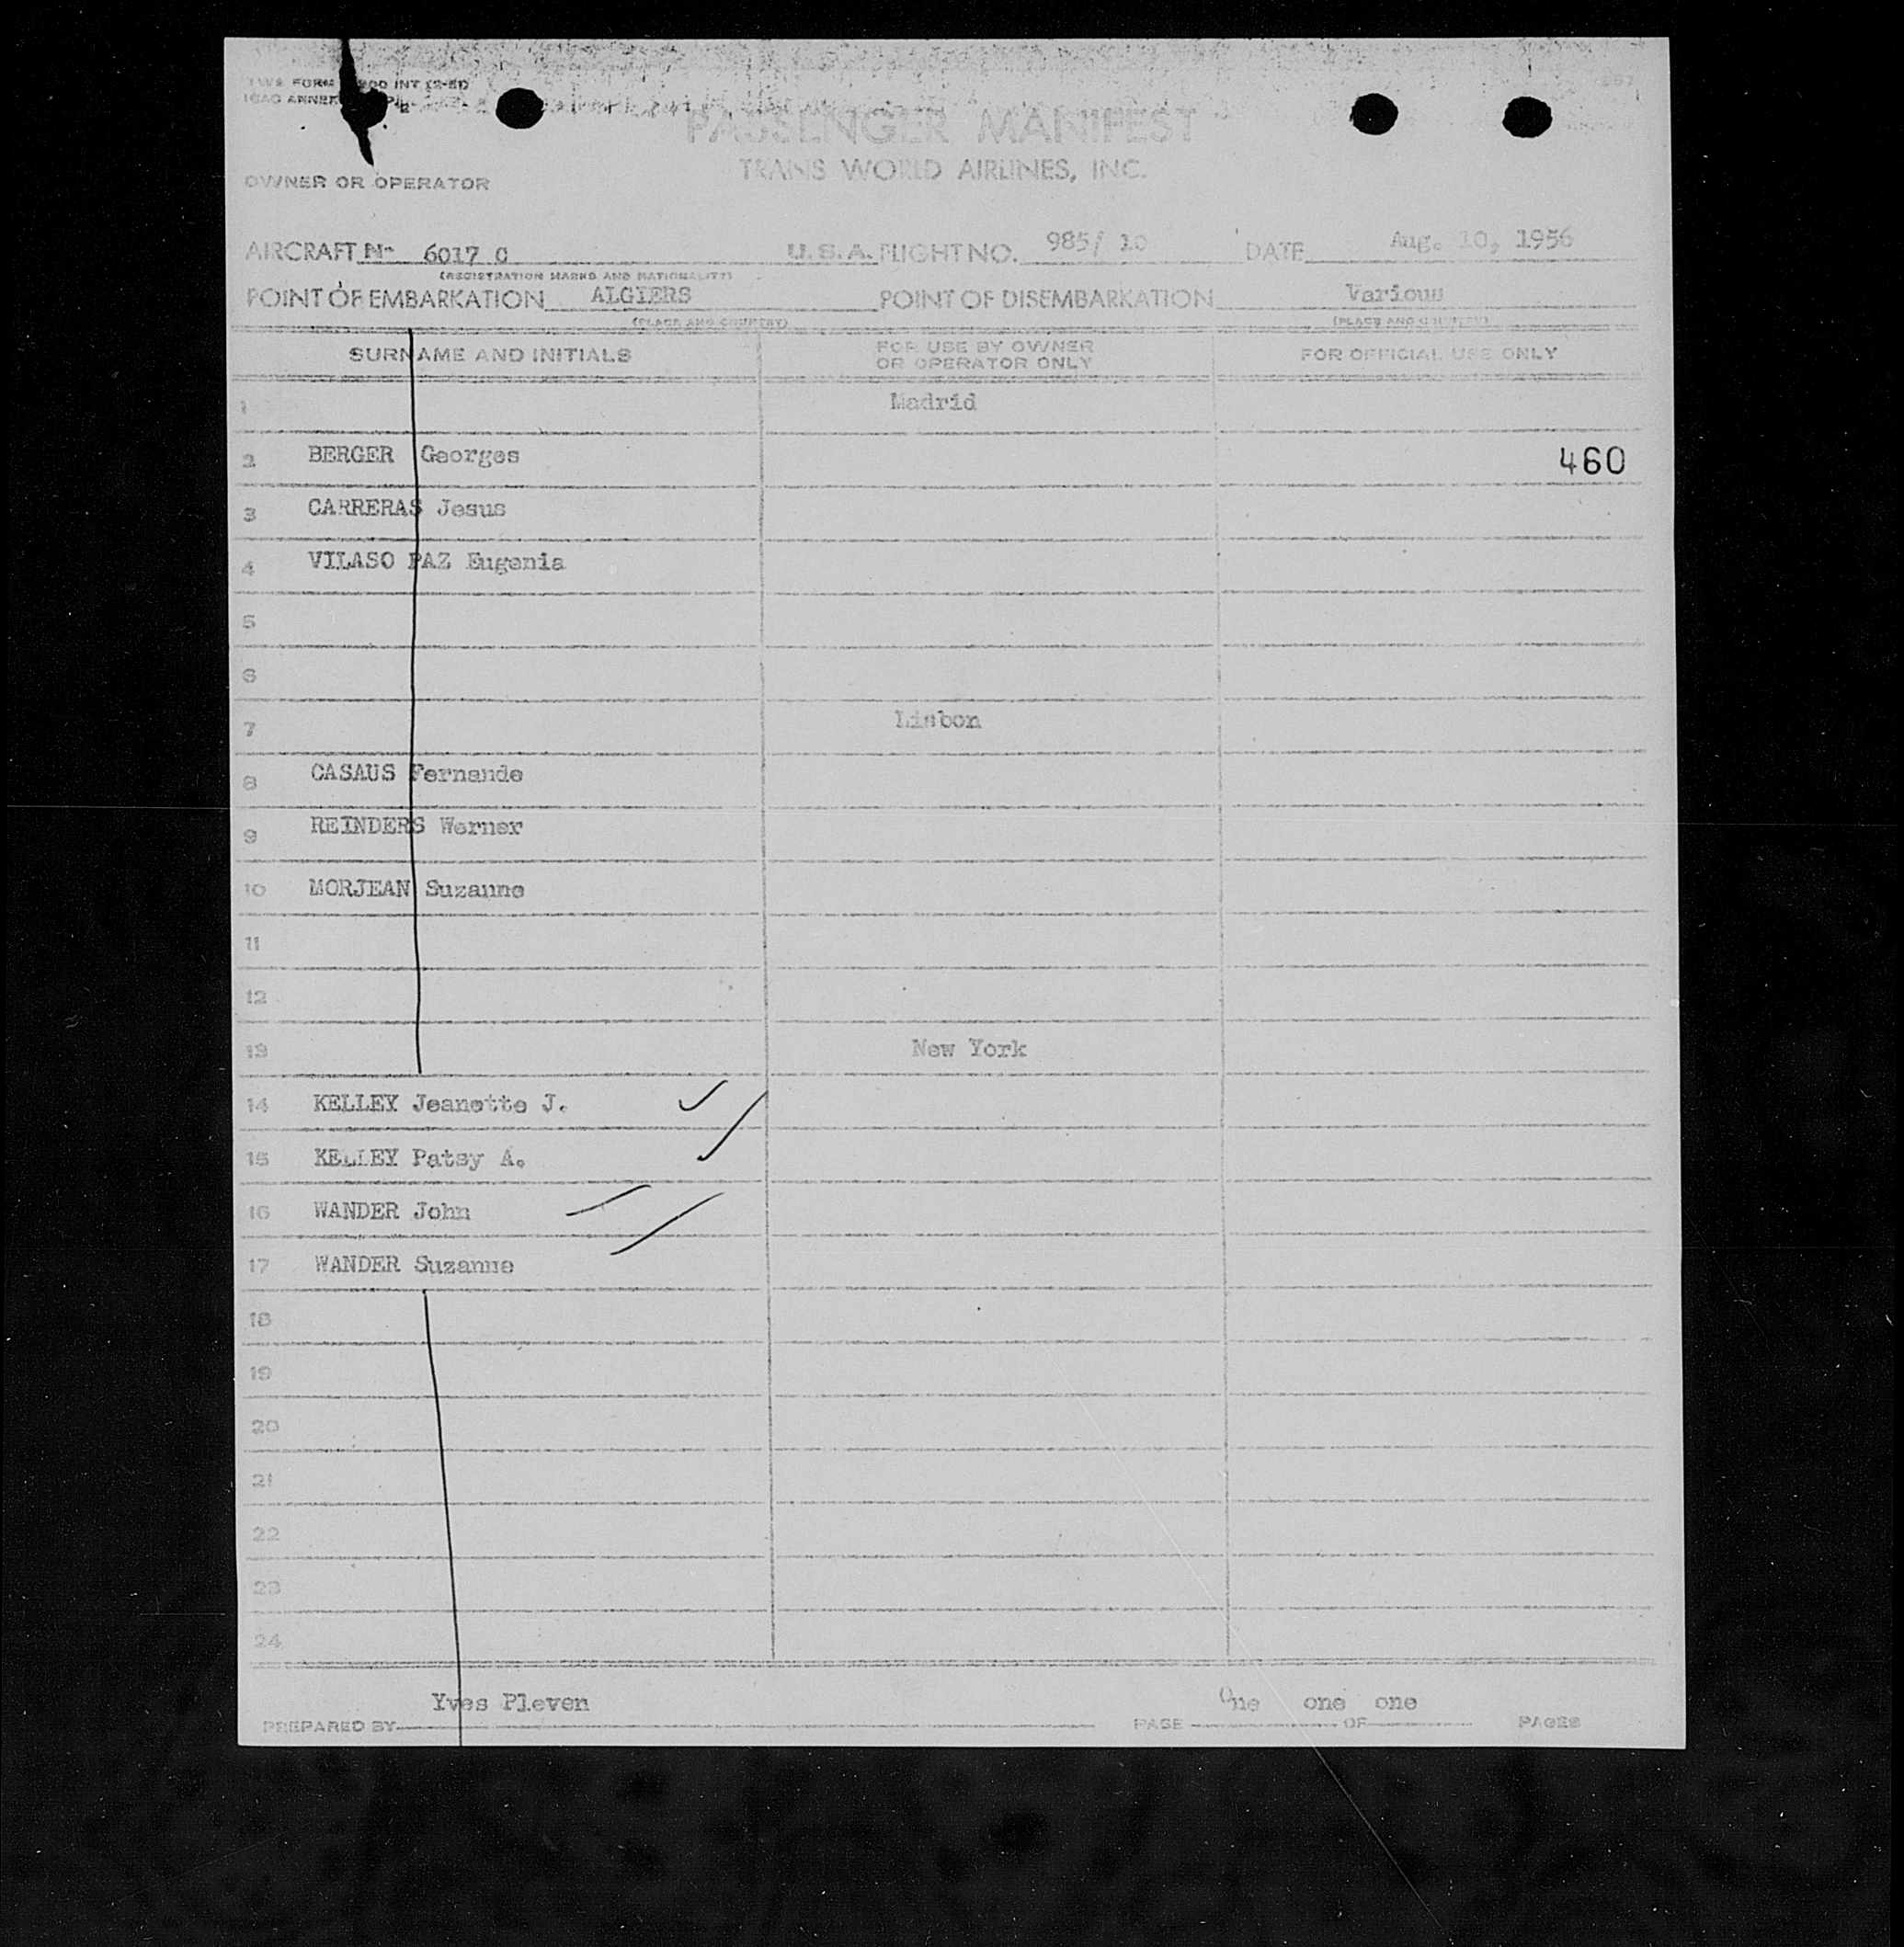 FORM 
ICAO ANNEX
PASSENGER MANIFEST
TRANS WORLD AIRLINES, INC.
OWNER OR OPERATOR
AIRCRAFT N- 6017 C U.S.A. FLIGHT NO. 985/ 10 DATE Aug. 10, 1956
(REGISTRATION MARKS AND NATIONALITY)
POINT OF EMBARKATION ALGIERS POINT OF DISEMBARKATION Various
(PLACE AND COUNTRY) (PLACE AND COUNTRY)
SURNAME AND INITIALS FOR USE BY OWNER OR OPERATOR ONLY FOR OFFICIAL USE ONLY
1 Madrid
2 BERGER Georges 460
3 CARRERAS Jesus
4 VILASO PAZ Eugenia
5
6
7 Lisbon
8 CASAUS Fernande
9 REINDERS Werner
10 MORJEAN Suzanne
11
12
13 New York
14 KELLEY Jeanette J.
15 KELLEY Patsy A.
16 WANDER John
17 WANDER Suzanne
18
19
20
21
22
23
24
Yves Pleven One one one
PREPARED BY PAGE OF PAGES